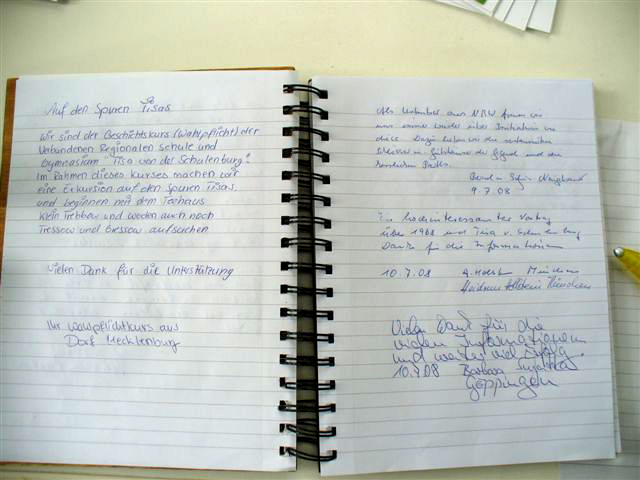 Auf den Spuren Tisas
Wir sind der Geschichtskurs (Wahlpflicht) der
Verbundenen Regionalen Schule und
Gymnasium "Tisa von der Schulenburg".
Im Rahmen dieses Kurses machen wir
eine Exkursion auf den Spuren Tisas
und beginnen mit dem Teehaus
Klein Trebbow und werden auch noch
Tressow und Gressow aufsuchen
Vielen Dank für die Unterstützung
Ihr Wahlpflichtkurs aus
Dorf Mecklenburg
Als Urlauber aus NRW freuen wir
uns immer wieder über Initiativen wie
diese. Dazu haben wir die
und der
9.7.08
Ein hochinteressanter Vortrag
über 1968 und Tisa v. Schulenburg
Danke für die Informationen
10.7.08 A. Holst München
München
Vielen Dank für die
vielen Informationen
und weiter viel
10.7.08 Barbara
Göppingen